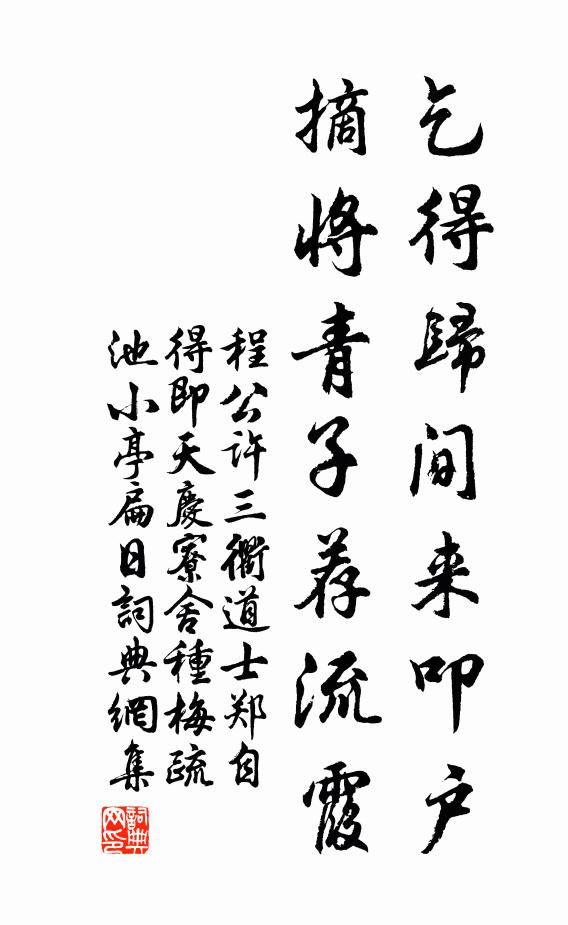 乞得歸间来叩户
摘將青子荐流霞
程公许三衢道士郑自
得即天慶寮舍種梅疏
池小亭扁日詞典網集
詞典
网印